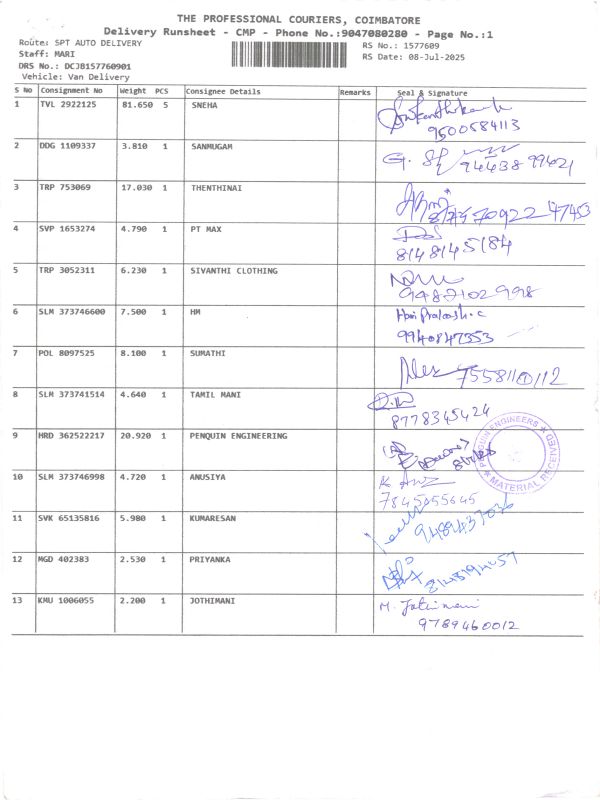 THE PROFESSIONAL COURIERS, COIMBATORE
Delivery Runsheet - CMP - Phone No.:9047080280 - Page No.:1
Route: SPT AUTO DELIVERY
Staff: MARI
DRS No.: DCJ8157760901
Vehicle: Van Delivery
RS No.: 1577609
RS Date: 08-Jul-2025
S No Consignment No Weight PCS Consignee Details Remarks Seal & Signature
1 TVL 2922125 81.650 5 SNEHA
9500584113
2 DDG 1109337 3.810 1 SANMUGAM G.
94438 99421
3 TRP 753069 17.030 1 THENTHINAI
4 SVP 1653274 4.790 1 PT MAX
8148145184
5 TRP 3052311 6.230 1 SIVANTHI CLOTHING
9487102998
6 SLM 373746600 7.500 1 HM Hari Prakash.c
9940847353
7 POL 8097525 8.100 1 SUMATHI Alex 7558110112
8 SLM 373741514 4.640 1 TAMIL MANI
8778345424
9 HRD 362522217 20.920 1 PENQUIN ENGINEERING
PENGUIN ENGINEERS ★ MATERIAL RECEIVED ★
10 SLM 373746998 4.720 1 ANUSIYA K
7845055645
11 SVK 65135816 5.980 1 KUMARESAN
9489437026
12 MGD 402383 2.530 1 PRIYANKA
13 KMU 1006055 2.200 1 JOTHIMANI M. Jothimani
9789460012